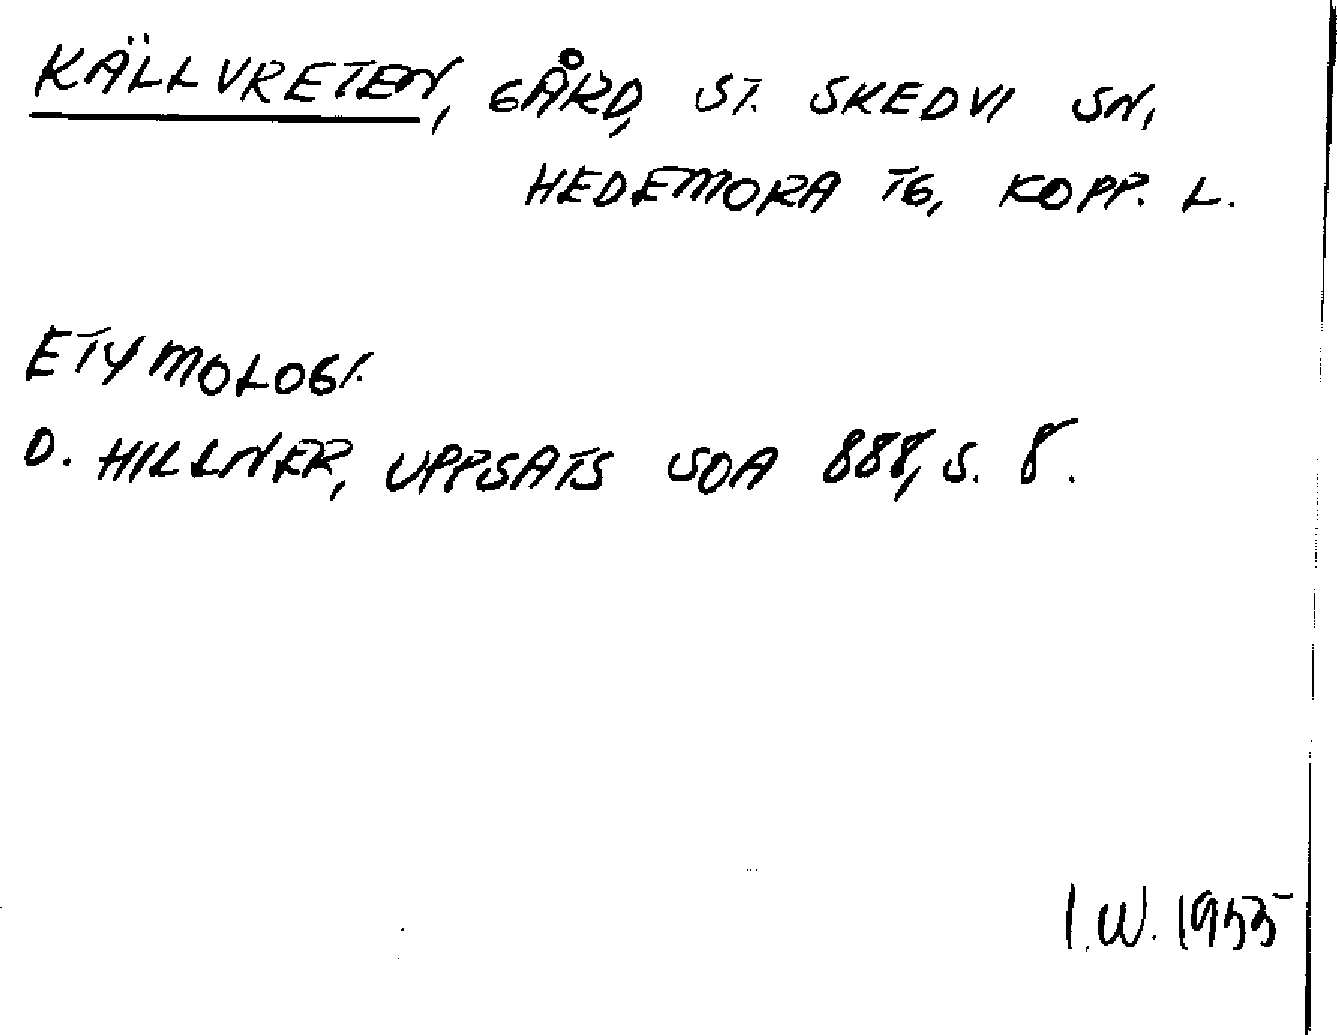 KÄLLVRETEN, GÅRD, ST. SKEDVI SN,
HEDEMORA TG, KOPP. L.
ETYMOLOGI.
D. HILLNER, UPPSATS SOA 888, S. 8.
I.W. 1955